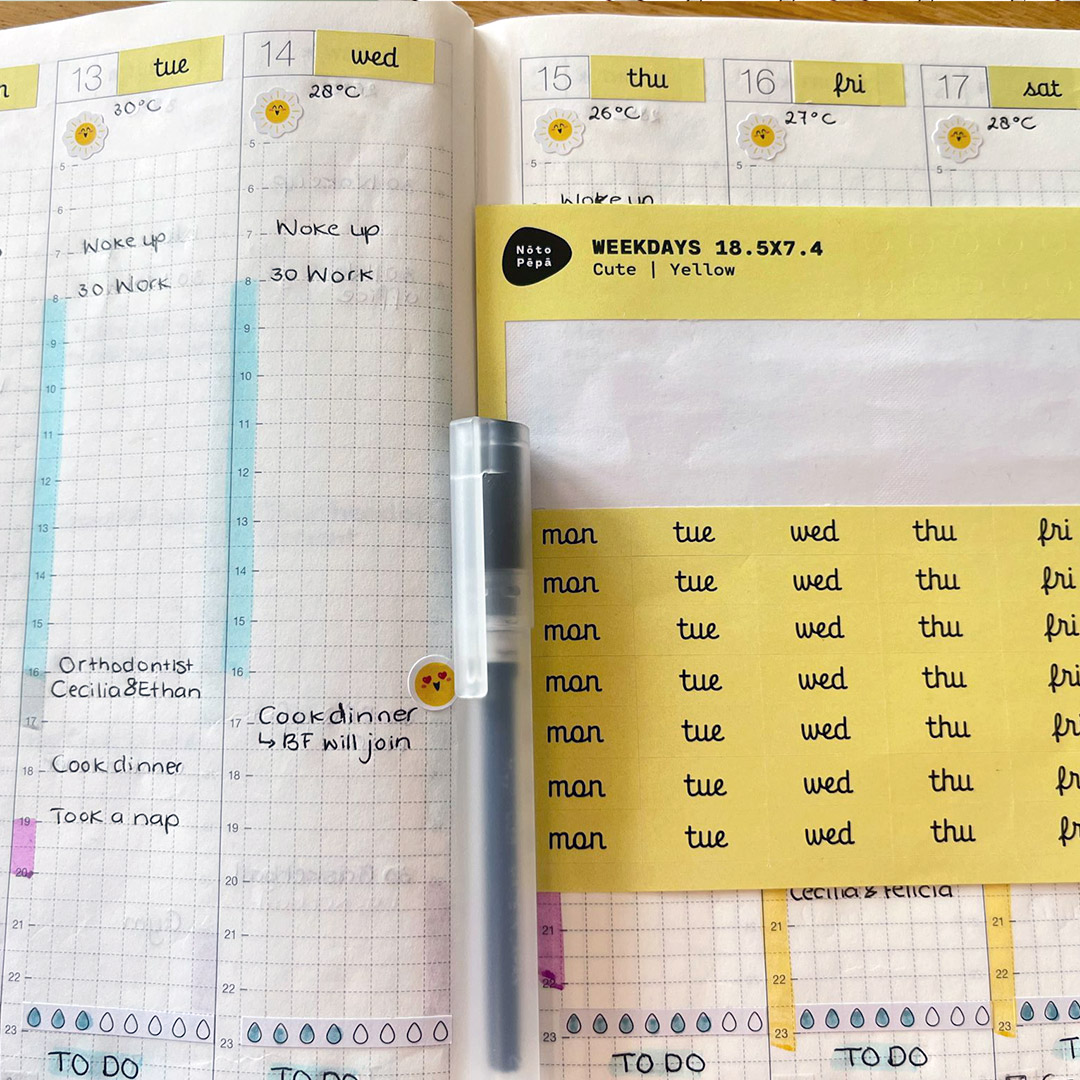 13 tue
30°C
5
6
7 Woke up
8 30 Work
9
10
11
12
13
14
15
16 Orthodontist
Cecilia & Ethan
17
18 Cook dinner
19 Took a nap
20
21
22
23
TO DO
14 wed
28°C
5
6
7 Woke up
8 30 Work
9
10
11
12
13
14
15
16
17 Cook dinner
↳ BF will join
18
19
20
21
22
23
TO DO
15 thu
26°C
5
Woke up
16 fri
27°C
5
17 sat
28°C
5
Nōto
Pēpā
WEEKDAYS 18.5X7.4
Cute | Yellow
mon tue wed thu fri
mon tue wed thu fri
mon tue wed thu fri
mon tue wed thu fri
mon tue wed thu fri
mon tue wed thu fr
mon tue wed thu fr
Cecilia & Felicia
21
22
23
TO DO
21
22
23
TO DO
21
22
23
T